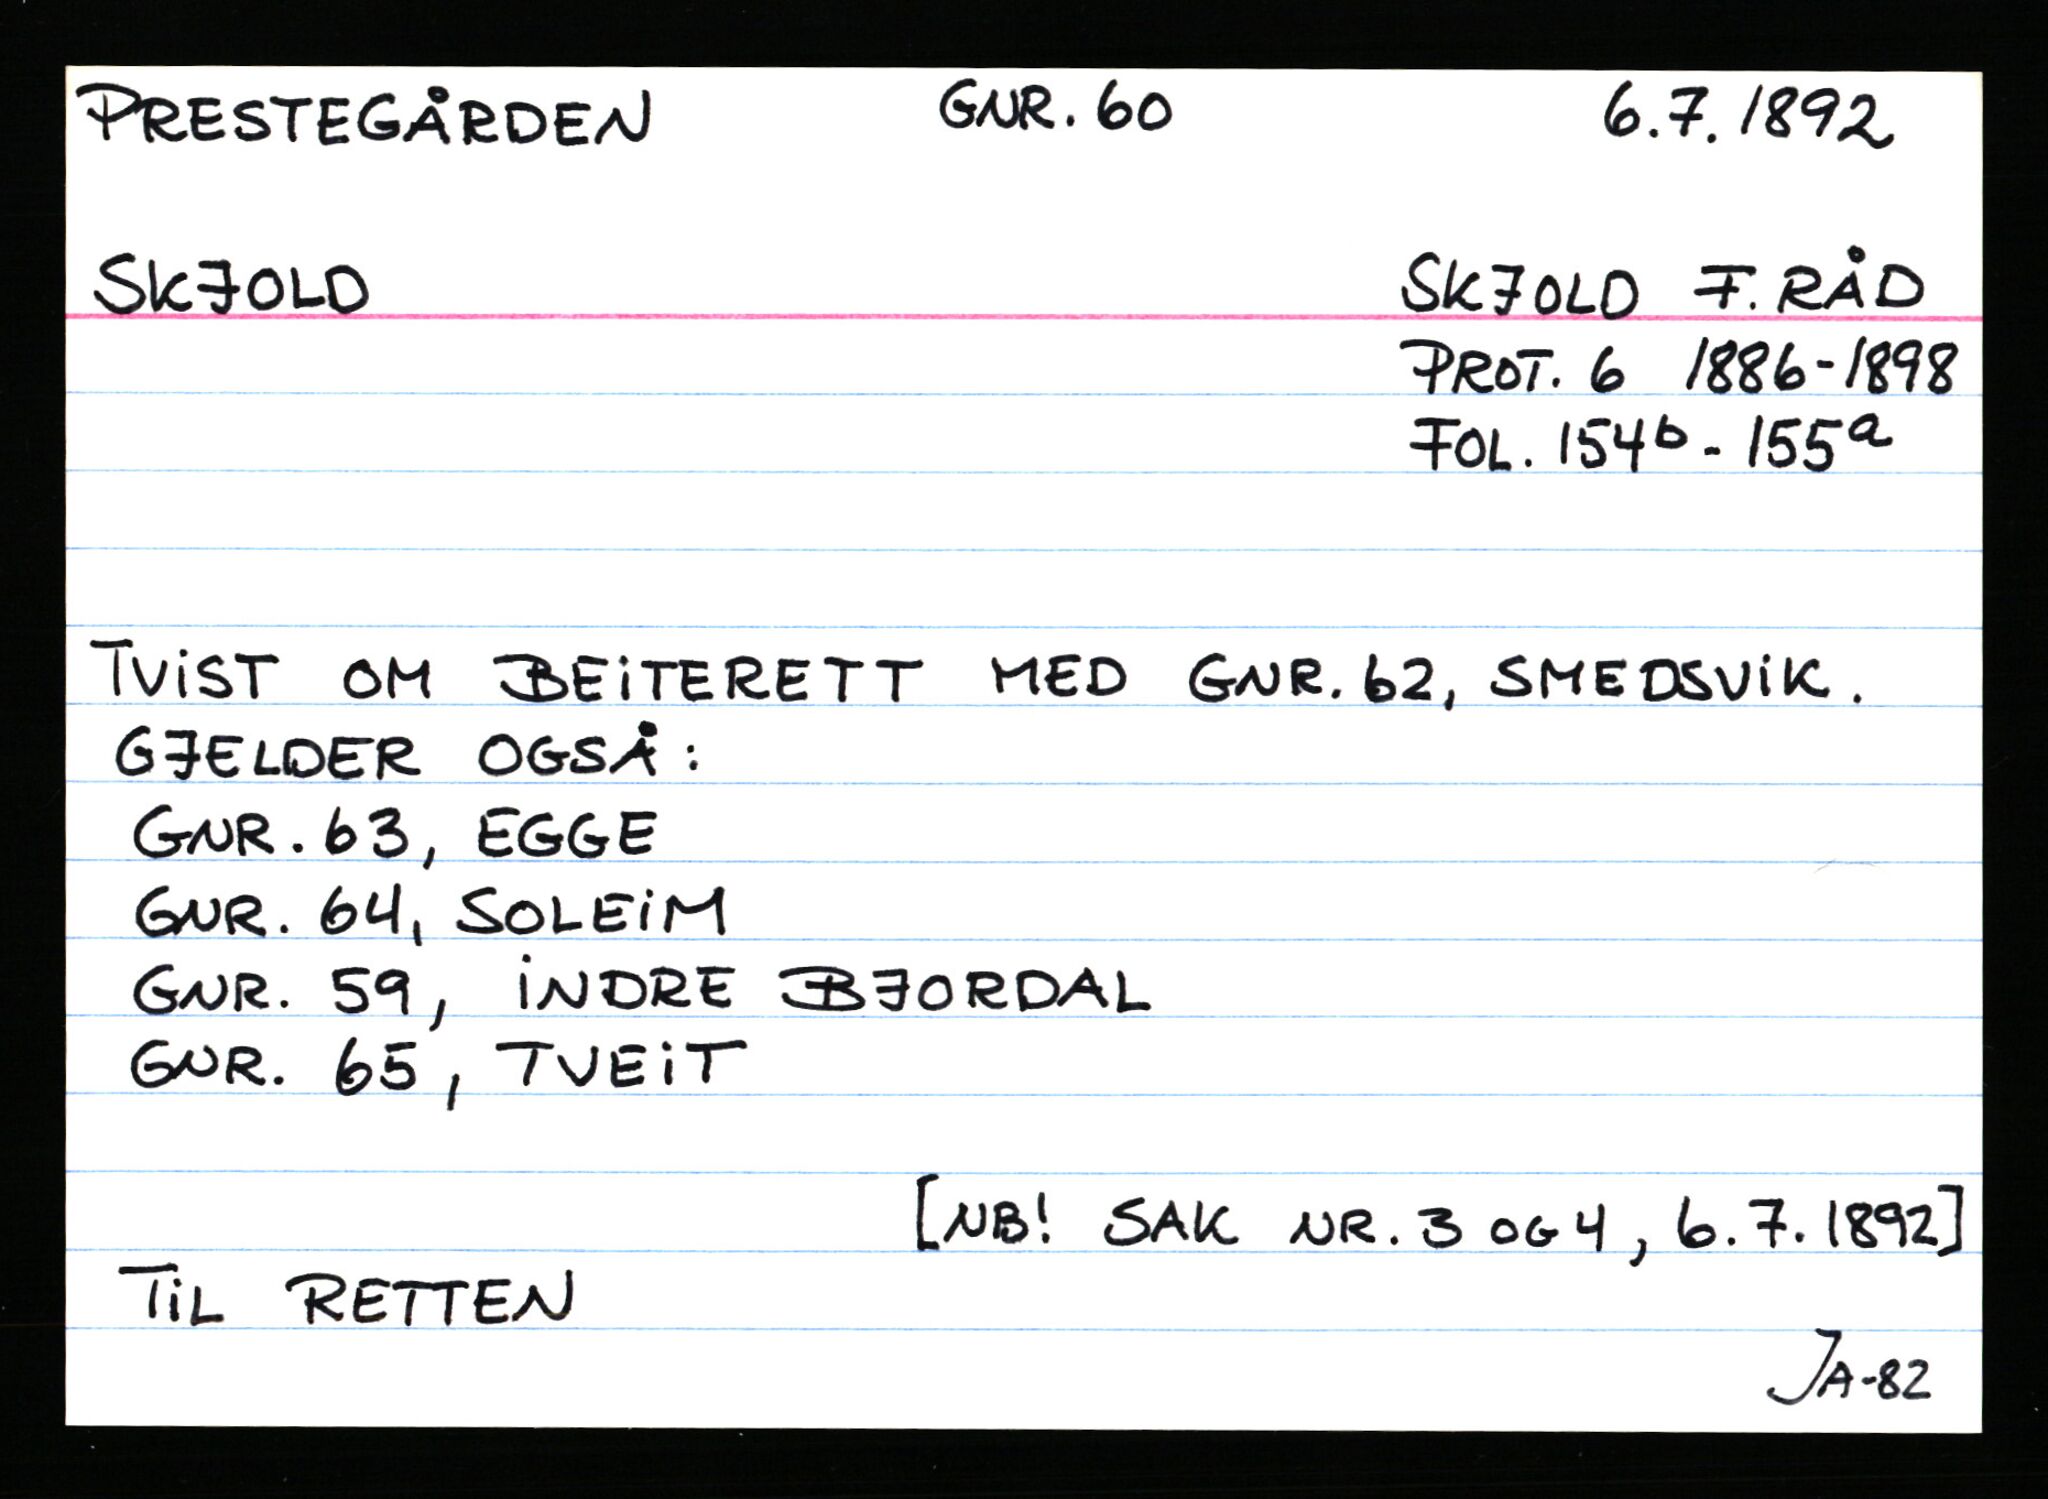 PRESTEGÅRDEN GNR. 60 6.7.1892
SKJOLD SKJOLD F. RÅD
PROT. 6 1886-1898
FOL. 154b - 155a
TViST OM BEiTERETT MED GNR. 62, SMEDSViK.
GJELDER OGSÅ:
GNR. 63, EGGE
GNR. 64, SOLEiM
GNR. 59, iNDRE BJORDAL
GNR. 65, TVEiT
[NB! SAK NR. 3 OG 4, 6.7.1892]
TiL RETTEN
JA-82